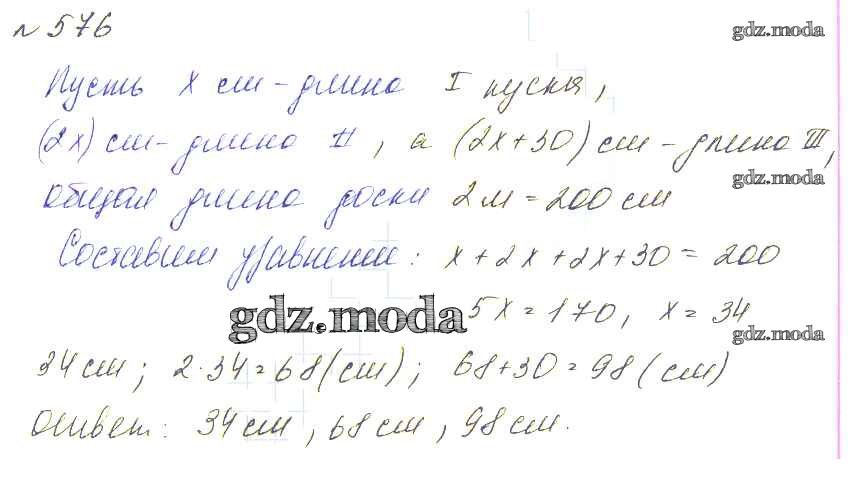 № 576
gdz.moda
Пусть x см - длина I куска,
(2x) см - длина II, а (2x+30) см - длина III,
gdz.moda
общая длина доски 2м = 200 см
Составим уравнение: x + 2x + 2x + 30 = 200
gdz.moda 5x = 170, x = 34
gdz.moda
34 см; 2·34 = 68 (см); 68 + 30 = 98 (см)
Ответ: 34 см, 68 см, 98 см.